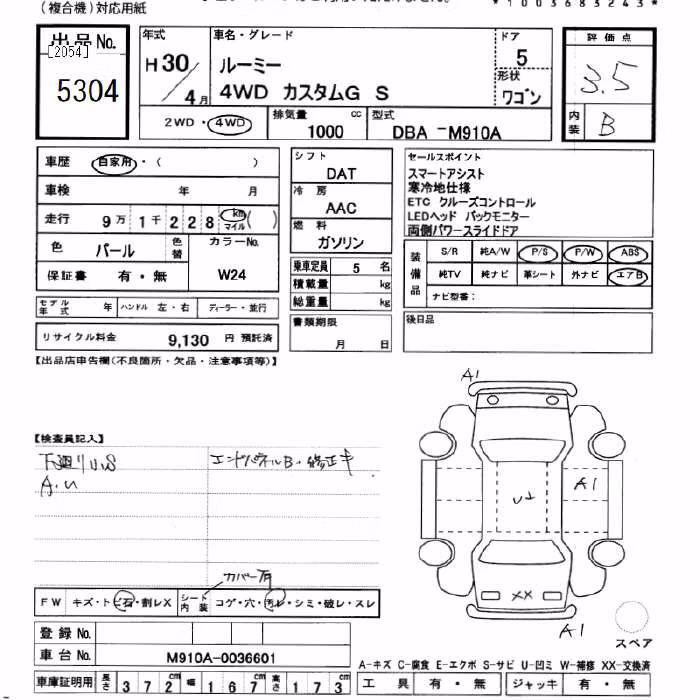 (複合機)対応用紙
*1003683243*
出品No.
[2054]
5304
年式
H30
4月
車名・グレード
ルーミー
4WD カスタムG S
ドア
5
形状
ワゴン
2WD・4WD
排気量
1000 cc
型式
DBA -M910A
評価点
3.5
内装
B
車歴 自家用・( )
車検 年 月
走行 9万1千228 km マイル ( )
色 パール 色替
カラーNo.
W24
保証書 有・無
モデル年式 年 ハンドル 左・右 ディーラー・並行
リサイクル料金 9,130 円 預託済
シフト
DAT
冷房
AAC
燃料
ガソリン
乗車定員 5 名
積載量 kg
総重量 kg
書類期限
月 日
セールスポイント
スマートアシスト
寒冷地仕様
ETC クルーズコントロール
LEDヘッド バックモニター
両側パワースライドドア
装備品
S/R 純A/W P/S P/W ABS
純TV 純ナビ 革シート 外ナビ エアB
ナビ型番:
後日品
【出品店申告欄(不良箇所・欠品・注意事項等)】
【検査員記入】
下廻りU.S
A.U
エンドパネルB・修正キ
カバー有
FW キズ・トビ石・割レX
シート内装 コゲ・穴・汚レ・シミ・破レ・スレ
A1
A1
A1
XX
スペア
登録No.
車台No. M910A-0036601
車庫証明用 長さ 372cm 幅 167cm 高さ 173
A-キズ C-腐食 E-エクボ S-サビ U-凹ミ W-補修 XX-交換済
工具 有・無 ジャッキ 有・無